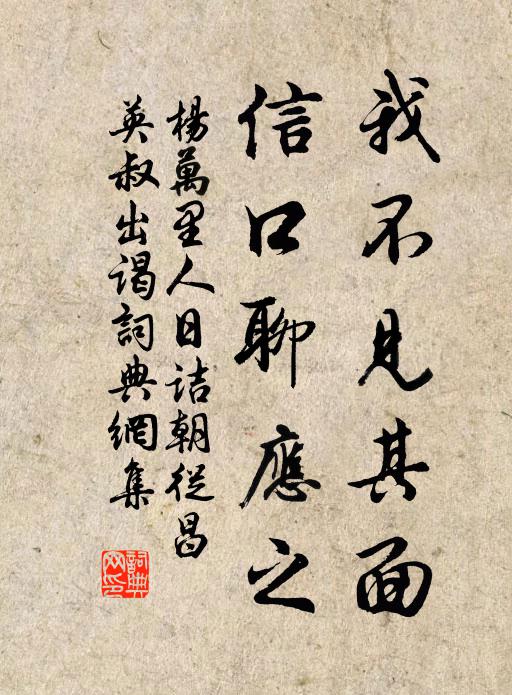 我不見其面
信口聊應之
楊萬里人日詰朝從昌
英叔出謁詞典網集
詞典
网印